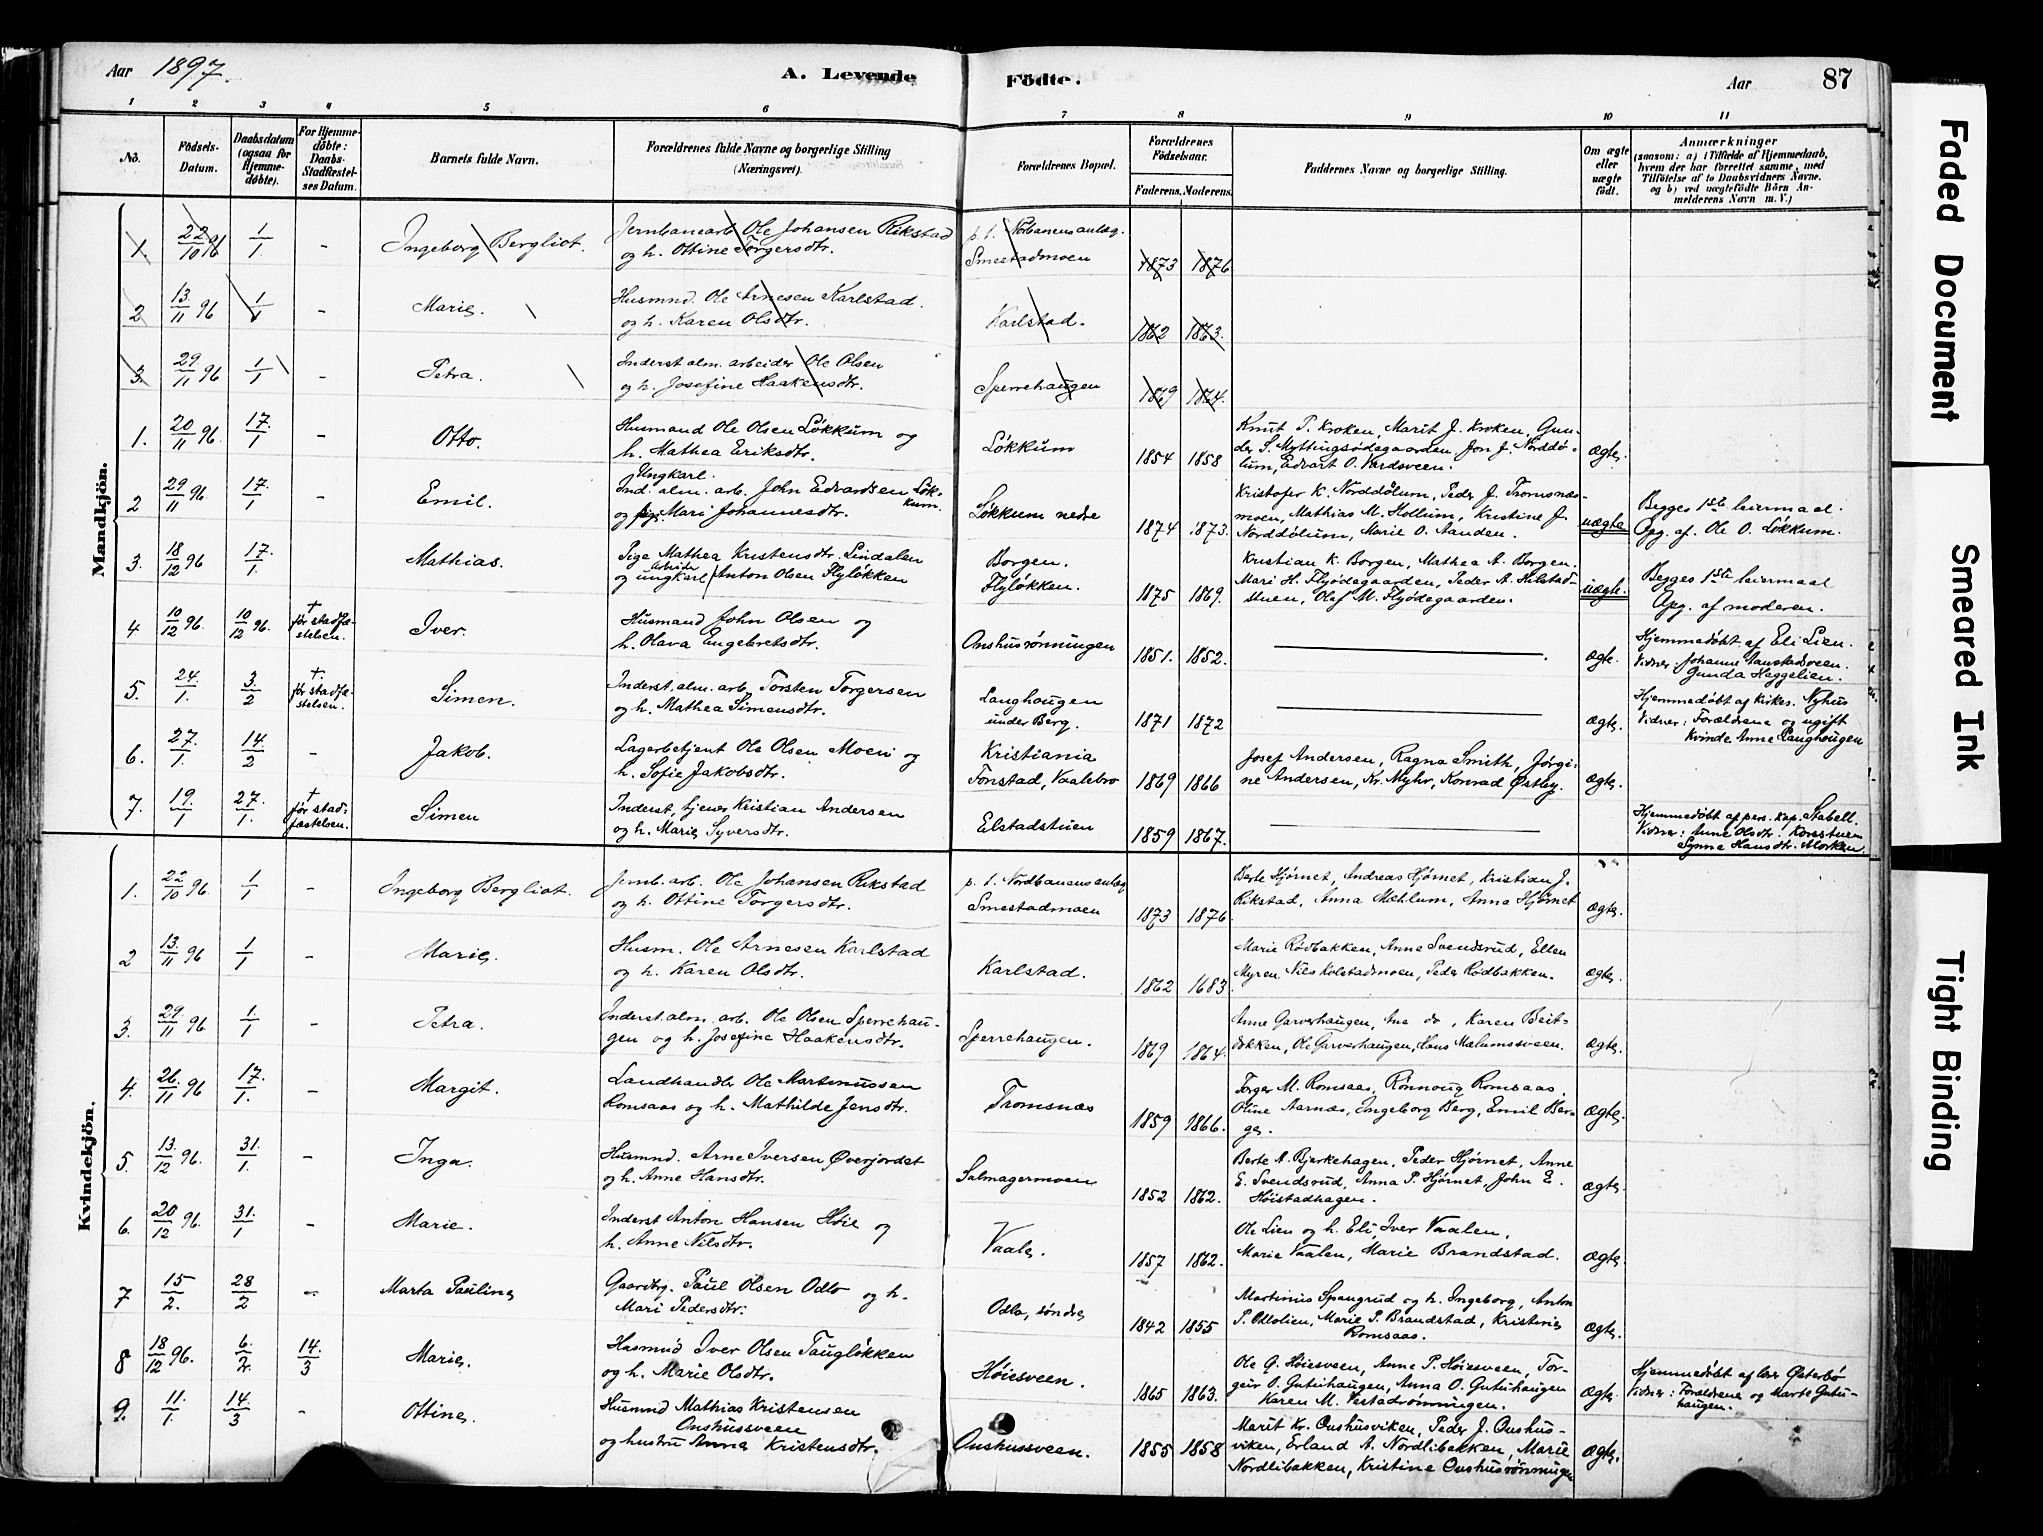 Aar 1897.
A. Levende Födte.
Aar 87
1 2 3 4 5 6 7 8 9 10 11
No.
Födsels-Datum.
Daabsdatum (ogsaa for Hjemmedöbte).
For Hjemmedöbte: Daabs-Stadfæstelses Datum.
Barnets fulde Navn.
Forældrenes fulde Navne og borgerlige Stilling (Næringsvei).
Forældrenes Bopæl.
Forældrenes Födselsaar.
Faderens. Moderens.
Faddernes Navne og borgerlige Stilling.
Om ægte eller uægte födt.
Anmærkninger
(saasom: a) i Tilfælde af Hjemmedaab, hvem der har forrettet samme, med Tilföielse af to Daabsvidners Navne. og b) ved uægtefödte Börn Anmelderens Navn m. V.)
Mandkjön.
1. 22/10 96 1/1 - Ingeborg Bergliot. Jernbanearb. Ole Johansen Rikstad
og h. Ottine Torgersdtr. p. t. Nordbanens anlæg. Smestadmoen 1873 1876
2 13/11 96 1/1 - Marie. Husmnd. Ole Arnesen Karlstad.
og h. Karen Olsdtr. Karlstad. 1862 1863.
3. 29/11 96 1/1 - Petra. Inderst alm. arbeider Ole Olsen
og h. Josefine Haakensdtr. Sperrehaugen 1869 1864.
1. 20/11 96. 17/1 - Otto. Husmand Ole Olsen Løkkum og
h. Mathea Eriksdtr. Løkkum 1854 1858 Knut P. Kroken, Marit J. Kroken, Gun-
der S. Myttingsødegaarden, Jon J. Norddø-
lum, Edvart O. Vardsveen. ægte.
2 29/11 96 17/1 - Emil. Ungkarl.
Ind. alm. arb. John Edvardsen Løk-
kum.
og pige Mari Johannesdtr. Løkkum nedre 1874 1873. Kristofer K. Norddølum, Peder J. Tromsnæs-
moen, Mathias M. Hollum, Kristine J.
Norddølum, Marie O. Aanden. uægte Begges 1ste leiermaal.
Opg. af. Ole O. Løkkum.
3. 18/12 96 17/1. Mathias. Pige Mathea Kristensdtr. Lindalen
og arbeider ungkarl Anton Olsen Flyløkken Borgen.
Flyløkken. 1875 1869. Kristian K. Borgen, Mathea A. Borgen.
Mari H. Flyødegaarden, Peder A. Hilstad-
stuen, Olef M. Flyødegaarden. uægte. Begges 1ste leiermaal
Opg. af moderen.
4 10/12 96. 10/12 96. † før stadfæ-
stelsen. Iver. Husmand John Olsen og
h. Olava Engebretsdtr. Onshusrønningen 1851. 1852. ægte. Hjemmedøbt af Eli Lien.
Vidner: Johanne Aanstadsveen.
Gunda Heggelien.
5. 24/1. 3/2 † før stadfæ-
stelsen. Simen. Inderst, alm. arb. Torsten Torgersen
og h. Mathea Simensdtr. Langhougen
under Berg. 1871 1872 ægte. Hjemmedøbt af Kirkes. Nyhus
Vidner: Forældrene og ugift
kvinde Anne Langhougen
6. 27/1. 14/2 - Jakob. Lagerbetjent Ole Olsen Moen og
h. Sofie Jakobsdtr. Kristiania
Tonstad, Vaalebro 1869 1866 Josef Andersen, Ragna Smith, Jørgi-
ne Andersen, Kr. Myhr, Konrad Østby. ægte.
7. 19/1 27/1. † før stad-
fæstelsen. Simen Inderst, tjener Kristian Andersen
og h. Marie Syversdtr. Elstadstuen 1859 1867. Hjemmedøbt af pers. kap. Stabell.
Vidner: Anne Olsdtr. Korsstuen
Synne Hansdtr. Morken
Kvindekjön.
1. 22/10 96 1/1 - Ingeborg Bergliot. Jernb. arb. Ole Johansen Rikstad
og h. Ottine Torgersdtr. p. t. Nordbanens anlæg
Smestadmoen 1873 1876 Berte Hjørnet, Andreas Hjørnet, Kristian J.
Rikstad, Anna Mæhlum, Anna Hjørnet ægte.
2 13/11 96 1/1 - Marie. Husm. Ole Arnesen Karlstad
og h. Karen Olsdtr. Karlstad. 1862 1683. Marie Rødbakken, Anne Svendsrud, Ellen
Myren Nils Kolstadmoen, Peder Rødbakken. ægte.
3. 29/11 96 1/1 - Petra. Inderst. alm. arb. Ole Olsen Sperrehau-
gen og h. Josefine Haakensdtr. Sperrehaugen. 1869 1864. Anne Garverhaugen, Ane do, Karen Beit-
dokken, Ole Garverhaugen, Hans Mælumssveen. ægte.
4. 26/11 96 17/1. - Margit. Landhandler Ole Martinussen
Romsaas og h. Mathilde Jensdtr. Tromsnæs 1859 1866. Torger M. Romsaas, Rønnoug Romsaas,
Oline Aarnæs, Ingeborg Berg, Emil Ber-
ge. ægte.
5. 13/12 96. 31/1. - Inga. Husmnd. Arne Iversen Øverjordet
og h. Anne Hansdtr. Salmagermoen 1852 1862. Berte A. Bjerkehagen, Peder Hjørnet, Anne
E. Svendsrud, Anna P. Hjørnet, John E.
Høistadhagen. ægte.
6. 20/12 96. 31/1 - Marie. Inderst Anton Hansen Høie og
h. Anne Nilsdtr. Vaale. 1857 1862. Ole Lien og h. Eli, Iver Vaalen,
Marie Vaalen, Marie Brandstad. ægte.
7 15/2. 28/2 - Marta Pauline Gaardbr. Paul Olsen Odlo og h.
Mari Pedersdtr. Odlo, søndre 1842 1855 Martinius Spangrud og h. Ingeborg, Anton
P. Odlolien, Marie P. Brandstad, Kristine
Romsaas. ægte.
8 18/12 96. 6/2. 14/3 Marie. Husmnd Iver Olsen Taugløkken
og h. Marie Olsdtr. Høiesveen. 1865 1863. Ole G. Høiesveen, Anne P. Høiesveen, Tor-
geir O. Gutuhaugen, Anna O. Gutuhaugen
Karen M. Vestadrønningen. ægte. Hjemmedøbt af lær. Østerbø
Vidner: Forældrene og Marte Gutu-
haugen.
9. 11/1. 14/3 - Ottine. Husmnd Mathias Kristensen
Onshussveen
og hustru Anna Kristensdtr. Onshussveen. 1855 1858 Marit Kr. Onshusviken, Peder J. Onshus-
viken, Erland A. Nordlibakken, Marie
Nordlibakken, Kristine Onshusrønningen ægte.
Faded Document
Smeared Ink
Tight Binding